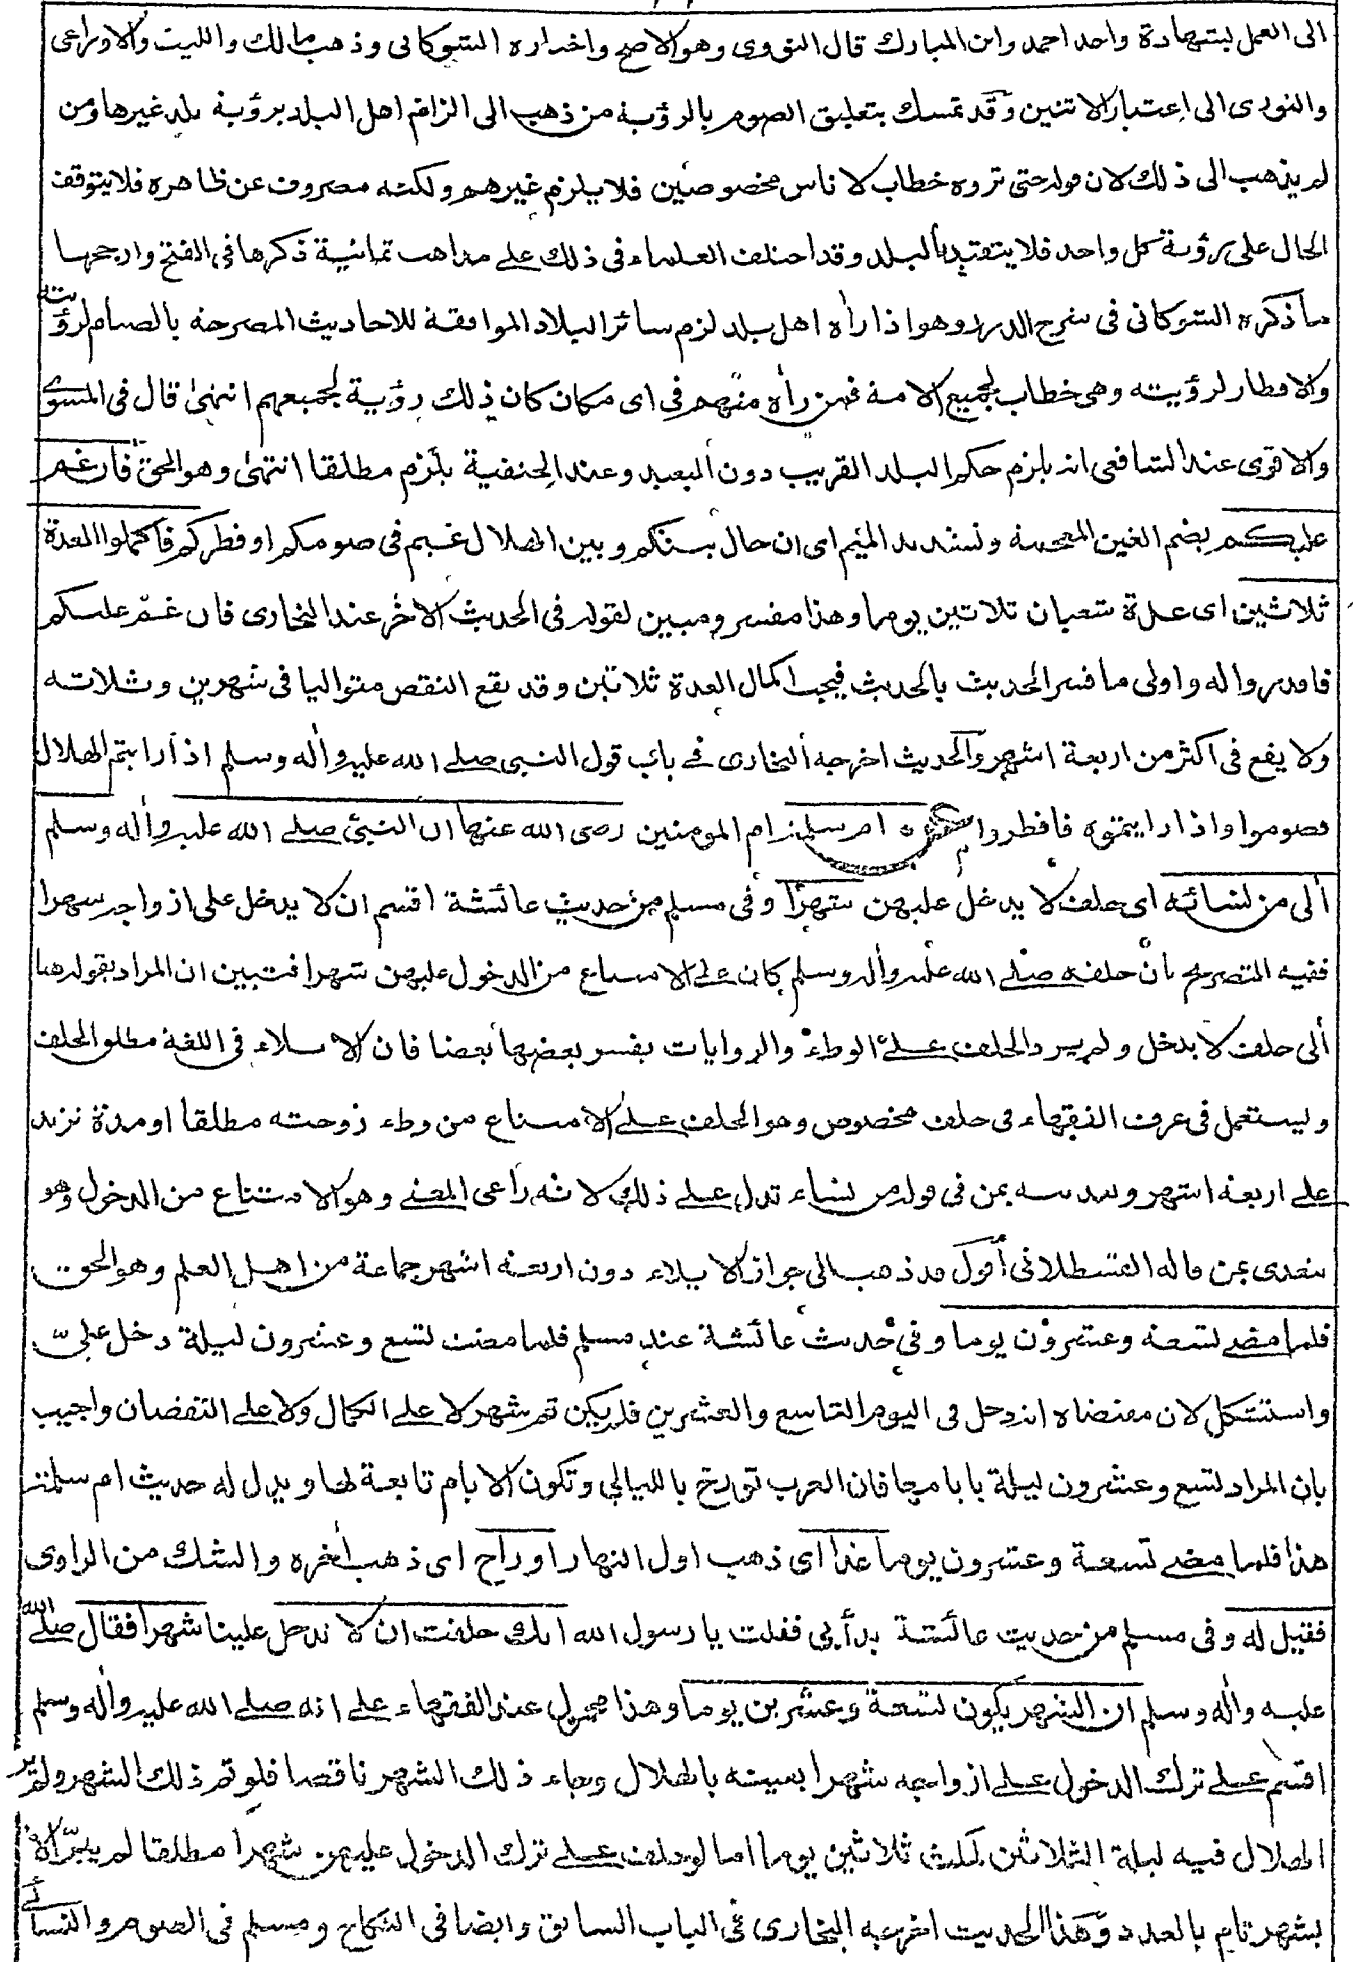 الى العمل بشهادة واحد احمد وابن المبارك قال النووى وهو الاصح واختاره الشوكانى وذهب مالك والليث والاوزاعى
والثورى الى اعتبار الاثنين وقد تمسك بتعليق الصوم بالرؤية من ذهب الى الزام اهل البلد برؤية بلد غيرها ومن
لم يذهب الى ذلك لان قوله حتى تروه خطاب لاناس مخصوصين فلا يلزم غيرهم ولكنه مصروف عن ظاهره فلا يتوقف
الحال على رؤية كل واحد فلا يتقيد بالبلد وقد اختلف العلماء فى ذلك على مذاهب ثمانية ذكرها فى الفتح وارجحها
ما ذكره الشوكانى فى شرح الدرر وهو اذا راٰه اهل بلد لزم سائر البلاد الموافقة للاحاديث المصرحة بالصيام لرؤيته
والافطار لرؤيته وهى خطاب لجميع الامة فمن راٰه منهم فى اى مكان كان ذلك رؤية لجميعهم انتهىٰ قال فى المسوىٰ
والاقوى عند الشافعى انه يلزم حكم البلد القريب دون البعيد وعند الحنفية يلزم مطلقا انتهىٰ وهو الحق فان غم
عليكم بضم الغين المعجمة وتشديد الميم اى ان حال بينكم وبين الهلال غيم فى صومكم او فطركم فاكملوا العدة
ثلاثين اى عدة شعبان ثلاثين يوما وهذا مفسر ومبين لقوله فى الحديث الاٰخر عند البخارى فان غمّ عليكم
فاقدروا له واولى ما فسر الحديث بالحديث فيجب اكمال العدة ثلاثين وقد يقع النقص متواليا فى شهرين وثلاثة
ولا يقع فى اكثر من اربعة اشهر والحديث اخرجه البخارى فے باب قول النبى صلے الله عليه واٰله وسلم اذا رايتم الهلال
فصوموا واذا رايتموه فافطروا ام سلمة ام المومنين رضى الله عنها ان النبى صلے الله عليه واٰله وسلم
اٰلى من نسائه اى حلف لا يدخل عليهن شهرًا وفى مسلم من حديث عائشة اقسم ان لا يدخل على ازواجه شهرا
ففيه التصريح بان حلفه صلے الله عليه واٰله وسلم كان علے الامتناع من الدخول عليهن شهرا فتبين ان المراد بقوله هنا
اٰلى حلف لا يدخل ولم يرد الحلف علے الوطء والروايات يفسر بعضها بعضا فان الايلاء فى اللغة مطلق الحلف
ويستعمل فى عرف الفقهاء فى حلف مخصوص وهو الحلف علے الامتناع من وطء زوجته مطلقا او مدة تزيد
علے اربعة اشهر وتعديته بمن فى قوله من نساء تدل علے ذلك لانه راعى المعنے وهو الامتناع من الدخول وهو
يتعدى بمن قاله القسطلانى أقول قد ذهب الى جواز الايلاء دون اربعة اشهر جماعة من اهل العلم وهو الحق
فلما مضے تسعة وعشرون يوما وفى حديث عائشة عند مسلم فلما مضت تسع وعشرون ليلة دخل علىّ
واستشكل لان مقتضاه انه دخل فى اليوم التاسع والعشرين فلم يكن ثم شهر لا علے الكمال ولا علے النقصان واجيب
بان المراد تسع وعشرون ليلة بايامها فان العرب تؤرخ بالليالى وتكون الايام تابعة لها ويدل له حديث ام سلمة
هذا فلما مضے تسعة وعشرون يوما غدا اى ذهب اول النهار اوراح اى ذهب اٰخره والشك من الراوى
فقيل له وفى مسلم من حديث عائشة بدأ بى فقلت يا رسول الله انك حلفت ان لا تدخل علينا شهرا فقال صلے الله
عليه واٰله وسلم ان الشهر يكون تسعة وعشرين يوما وهذا محمول عند الفقهاء علے انه صلے الله عليه واٰله وسلم
اقسم علے ترك الدخول علے ازواجه شهرا بعينه بالهلال وجاء ذلك الشهر ناقصا فلو تم ذلك الشهر ولم ير
الهلال فيه ليلة الثلاثين لمكث ثلاثين يوما اما لو حلف علے ترك الدخول عليهن شهرا مطلقا لم يبرّ الا
بشهر تام بالعدد وهذا الحديث اخرجه البخارى فى الباب السابق وايضا فى النكاح ومسلم فى الصوم والنسائے